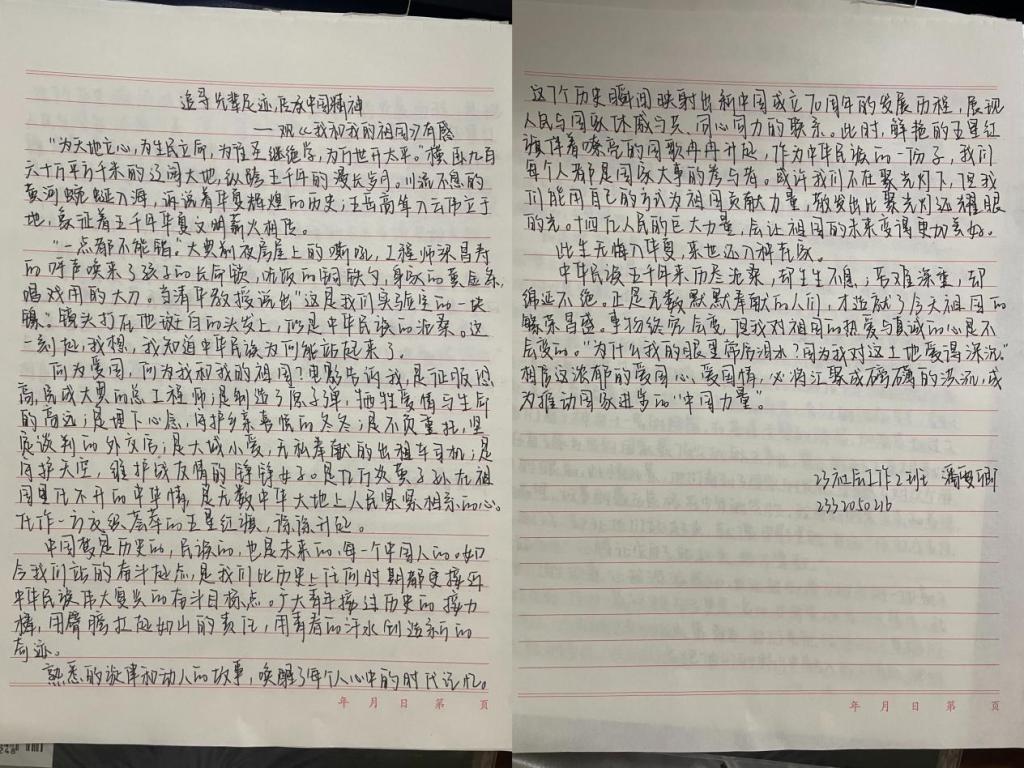 追寻先辈足迹,启承中国精神
——观《我和我的祖国》有感
"为天地立心,为生民立命,为往圣继绝学,为万世开太平。"横卧九百
六十万平方千米的辽阔大地,纵跨五千年的漫长岁月。川流不息的
黄河蜿蜒入海,诉说着华夏辉煌的历史;五岳高耸入云伟立于
地,象征着五千年华夏文明薪火相传。
"一点都不能错。"大典前夜房屋上的嘶吼,工程师梁昌寿
的呼声唤来了孩子的长命锁,吃饭的铜铁勺,身家的
唱戏用的大刀。当清华教授说出"这是我们实验室的一块
镍。"镜头打在他斑白的头发上,似是中华民族的沧桑。这
一刻起,我想,我知道中华民族为何能站起来了。
何为爱国,何为我和我的祖国?电影告诉我,是征服恐
高,完成大典的总工程师;是制造了原子弹,牺牲爱情与生命
的高远;是埋下心意,守护乡亲喜悦的冬冬;是不负重托,坚
定谈判的外交官;是大城小爱,无私奉献的出租车司机;是
守护天空,维护战友情的铮铮女子。是亿万炎黄子孙在祖
国里化不开的中华情,是无数中华大地上人民紧紧相系的心。
化作一方方鲜艳的五星红旗,徐徐升起。
中国梦是历史的,民族的,也是未来的,每一个中国人的。如
今我们站的奋斗起点,是我们比历史上任何时期都更接近
中华民族伟大复兴的奋斗目标点。广大青年接过历史的接力
棒,用臂膀扛起如山的责任,用青春的汗水创造新的
奇迹。
熟悉的旋律和动人的故事,唤醒了每个人心中的时代记忆。
年 月 日 第 页
这7个历史瞬间映射出新中国成立70周年的发展历程,展现
人民与国家休戚与共、同心同力的联系。此时,鲜艳的五星红
旗伴着嘹亮的国歌冉冉升起,作为中华民族的一份子,我们
每个人都是国家大事的参与者。或许我们不在聚光灯下,但我
们能用自己的方式为祖国贡献力量,散发出比聚光灯还耀眼
的光。十四亿人民的巨大力量,会让祖国的未来变得更加美好。
此生无悔入华夏,来世还入种花家。
中华民族五千年来历尽沧桑,却生生不息;苦难深重,却
绵延不绝。正是无数默默奉献的人们,才造就了今天祖国的
繁荣昌盛。事物终究会变,但我对祖国的热爱与真诚的心是不
会变的。"为什么我的眼里常含泪水?因为我对这土地爱得深沉"
相信这浓郁的爱国心、爱国情,必将汇聚成磅礴的洪流,成
为推动国家进步的"中国力量"。
23社会工作2班
2332050216
年 月 日 第 页